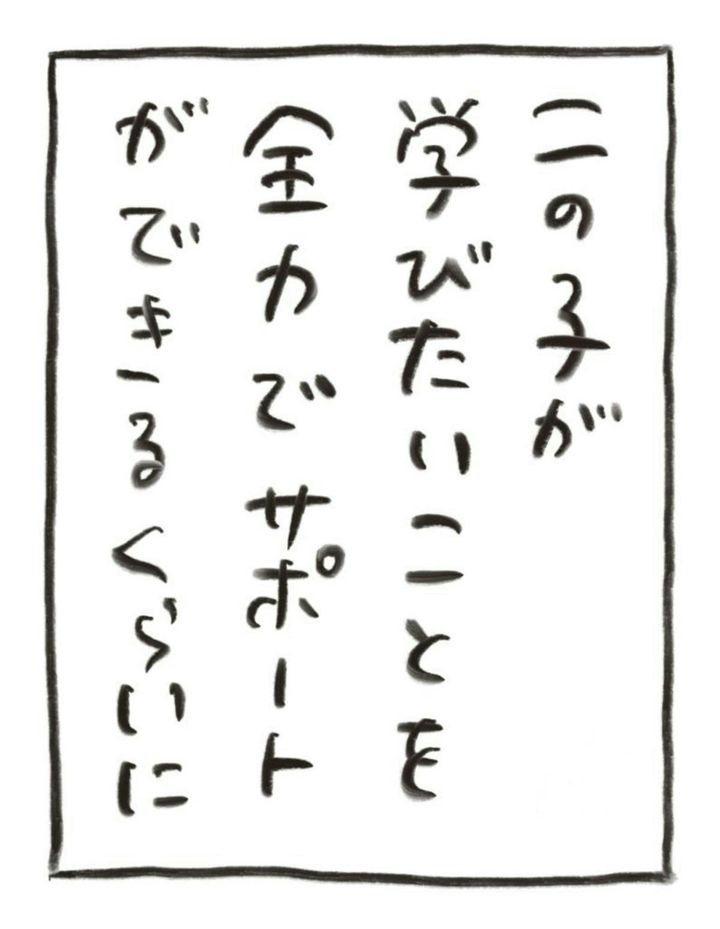 この子が
学びたいことを
全力でサポート
ができるくらいに